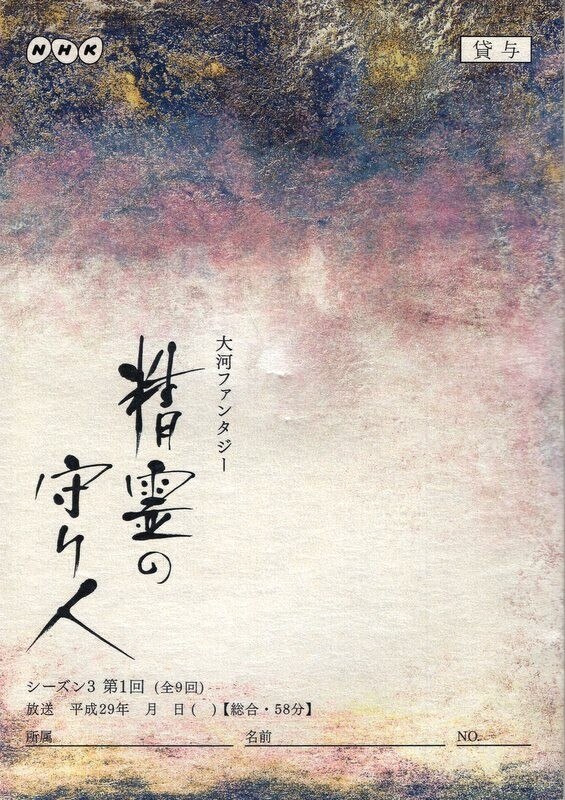 NHK
貸与
大河ファンタジー
精霊の
守り人
シーズン3 第1回 (全9回)
放送 平成29年 月 日 ( )【総合・58分】
所属 名前 NO.